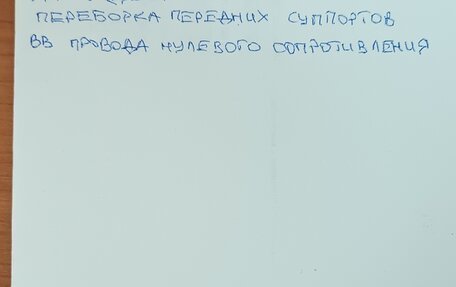 ПЕРЕБОРКА ПЕРЕДНИХ СУППОРТОВ
ВВ ПРОВОДА НУЛЕВОГО СОПРОТИВЛЕНИЯ